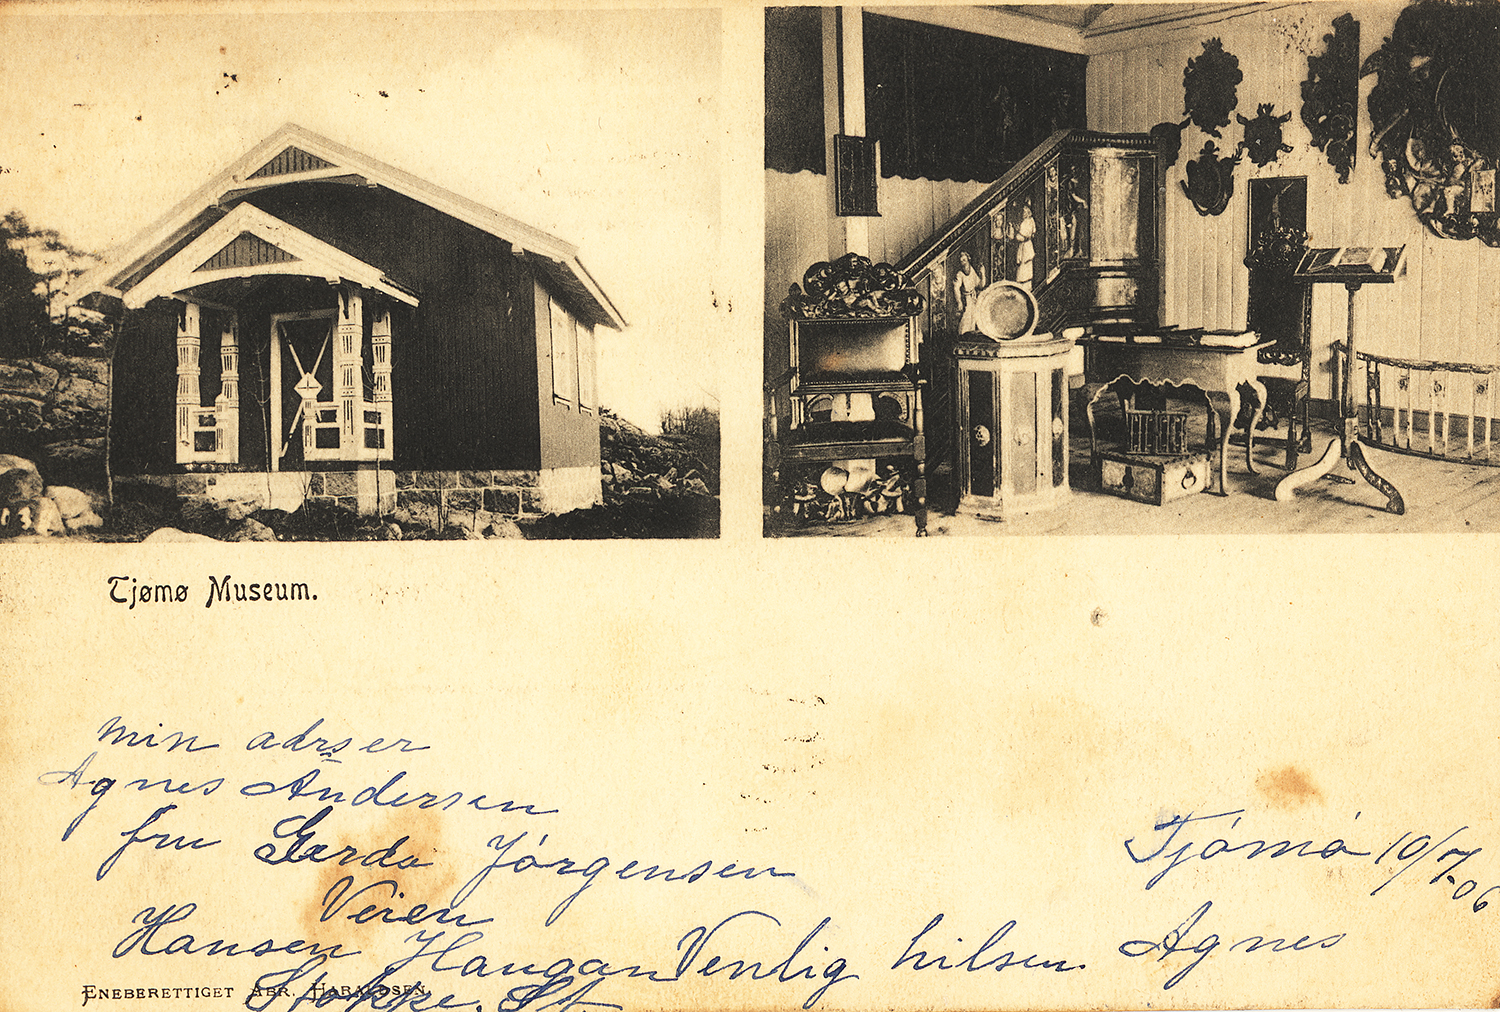 Tjømø Museum.
min adrser
Agnes Andersen
fru Gerda Jørgensen
Veien
Hansen Haugan Venlig hilsen Agnes
Tjømø 10/7-06
Stokke. St.
ENEBERETTIGET ABR. HARALDSEN.